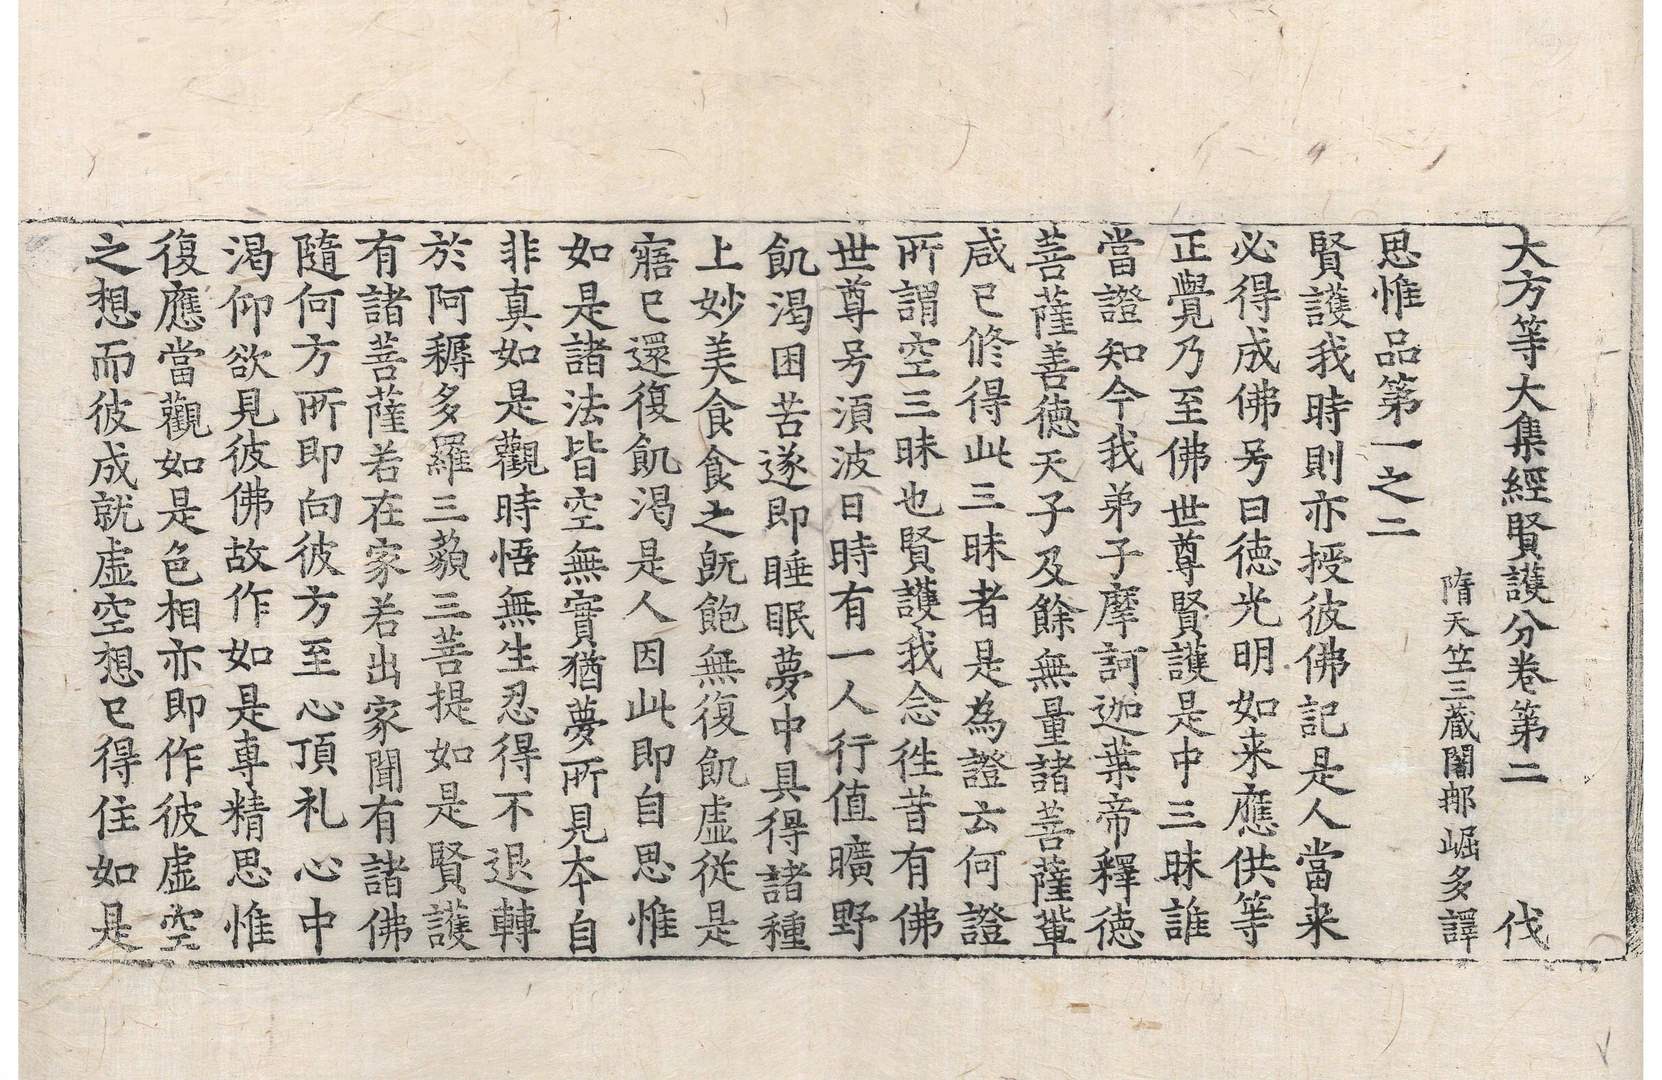 大方等大集經賢護分卷第二 伐
隋天竺三藏闍那崛多譯
思惟品第一之二
賢護我時則亦授彼佛記是人當来
必得成佛号曰徳光明如来應供等
正覺乃至佛世尊賢護是中三昧誰
當證知今我弟子摩訶迦葉帝釋徳
菩薩善徳天子及餘無量諸菩薩輩
咸已修得此三昧者是為證云何證
所謂空三昧也賢護我念徃昔有佛
世尊号湏波日時有一人行值曠野
飢渴困苦遂即睡眠夢中具得諸種
上妙美食食之旣飽無復飢虛從是
寤已還復飢渴是人因此即自思惟
如是諸法皆空無實猶夢所見夲自
非真如是觀時悟無生忍得不退轉
於阿耨多羅三藐三菩提如是賢護
有諸菩薩若在家若出家聞有諸佛
隨何方所即向彼方至心頂礼心中
渴仰欲見彼佛故作如是専精思惟
復應當觀如是色相亦即作彼虛空
之想而彼成就虛空想已得住如是